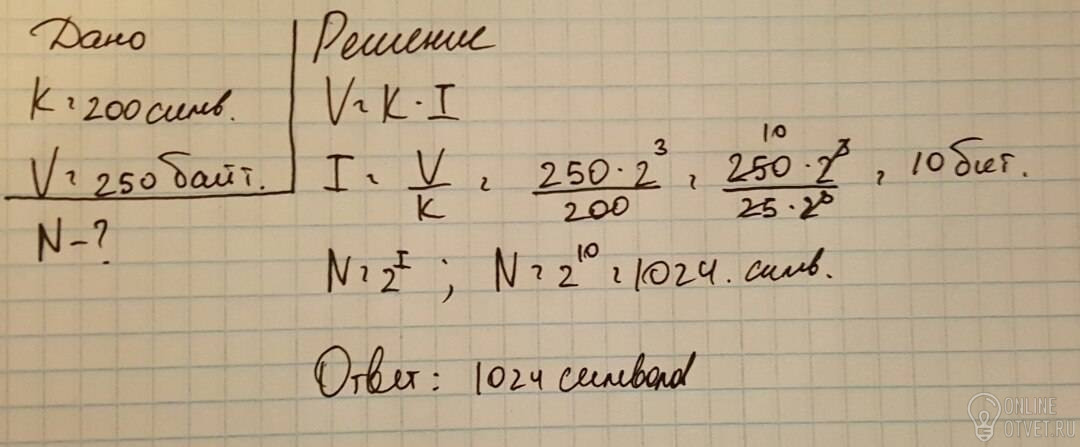 Дано
K = 200 симв.
V = 250 байт.
N - ?
Решение
V = K · I
I = V/K = 250 · 2³/200 = 250 · 2³/25 · 2³ = 10 бит.
10
N = 2^I ; N = 2^10 = 1024. симв.
Ответ: 1024 символа
ONLINE
OTVET.RU